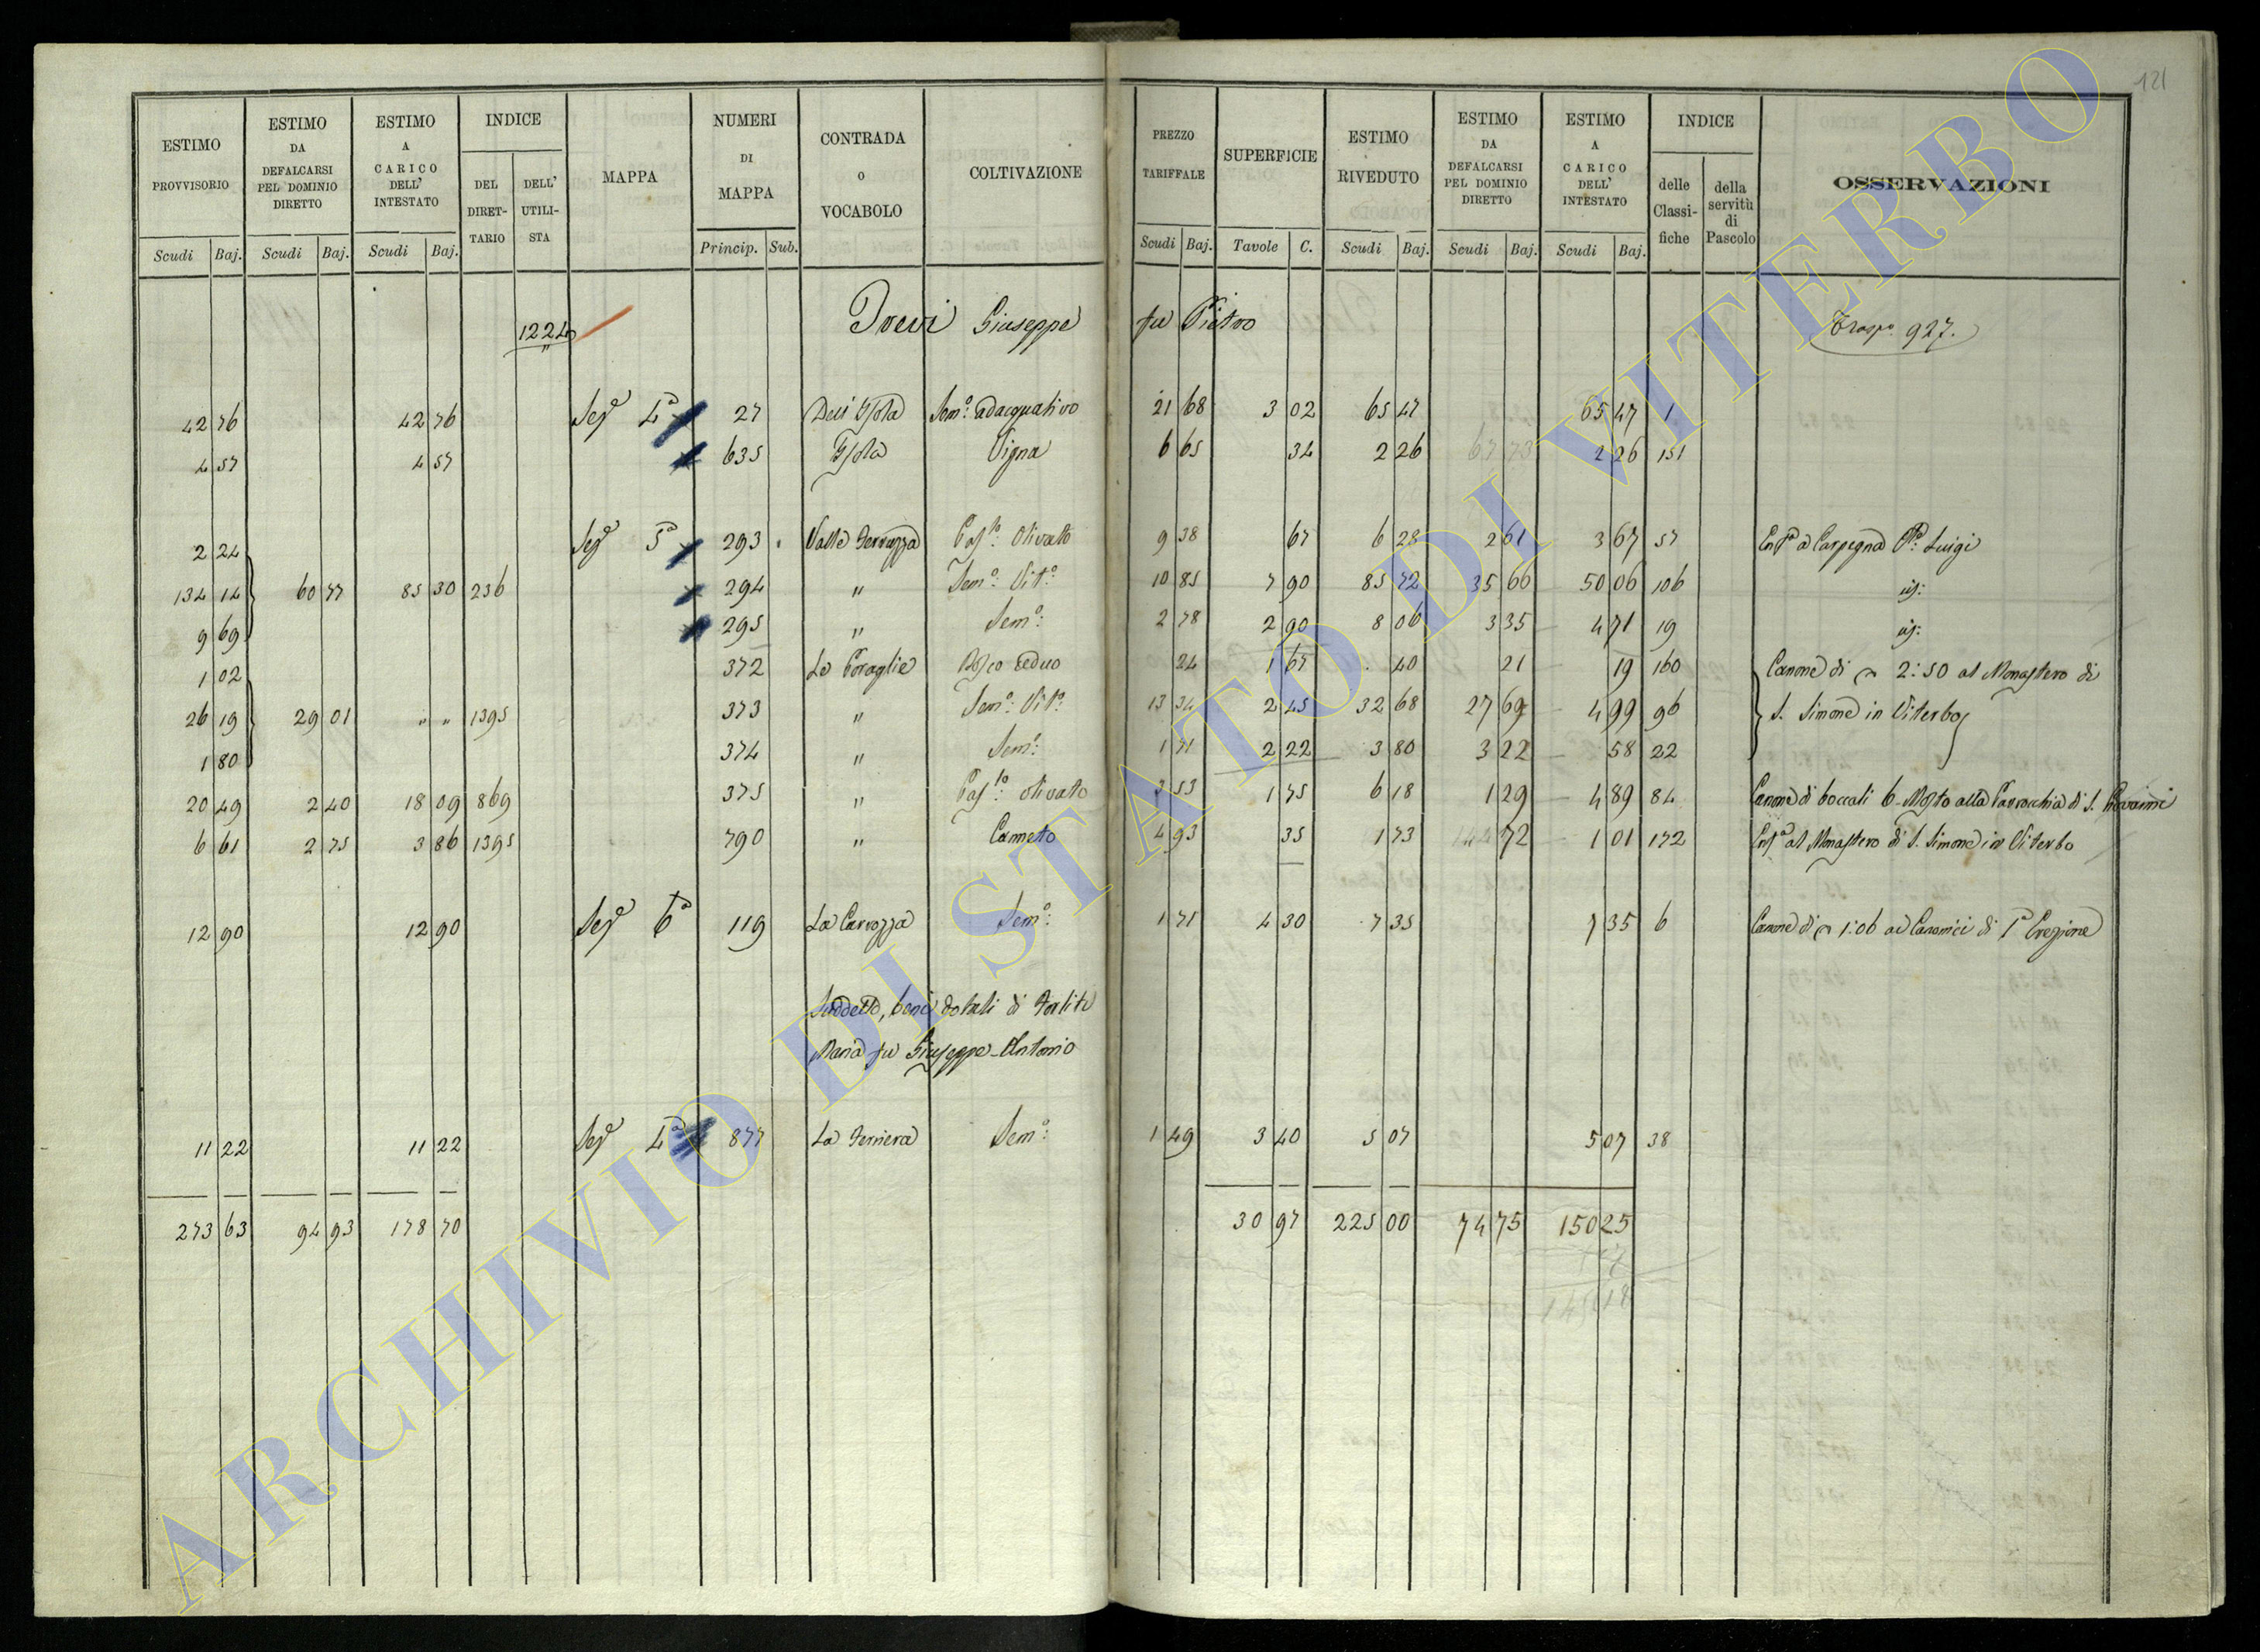 121
ESTIMO PROVVISORIO | ESTIMO DA DEFALCARSI PEL DOMINIO DIRETTO | ESTIMO A CARICO DELL' INTESTATO | INDICE | MAPPA | NUMERI DI MAPPA | CONTRADA O VOCABOLO | COLTIVAZIONE | PREZZO TARIFFALE | SUPERFICIE | ESTIMO RIVEDUTO | ESTIMO DA DEFALCARSI PEL DOMINIO DIRETTO | ESTIMO A CARICO DELL' INTESTATO | INDICE | OSSERVAZIONI
DEL DIRETTARIO | DELL' UTILISTA | delle Classifiche | della servitù di Pascolo
Scudi | Baj. | Scudi | Baj. | Scudi | Baj. | Princip. | Sub. | Scudi | Baj. | Tavole | C. | Scudi | Baj. | Scudi | Baj. | Scudi | Baj.
1224 Giuseppe fu Pietro Trasp.o 927.
42 76 | 42 76 | Sez.e 4a | 27 | Dell' Isola | Sem.o adacquativo | 21 68 | 3 02 | 65 47 | 65 47 | 1
4 57 | 4 57 | 635 | Isola | Vigna | 6 65 | 34 | 2 26 | 67 73 | 2 26 | 151
2 24 | Sez.e 5a | 293 | Valle | Pas.lo Olivato | 9 38 | 67 | 6 28 | 2 61 | 3 67 | 57 | Enf.a a Carpegna Luigi
134 14 | 60 77 | 85 30 | 236 | 294 | " | Sem.o Vit.o | 10 85 | 7 90 | 85 72 | 35 66 | 50 06 | 106
9 69 | 295 | " | Sem.o | 2 78 | 2 90 | 8 06 | 3 35 | 4 71 | 19
1 02 | 372 | Bosco ceduo | 24 | 1 67 | 40 | 21 | 19 | 160 | Canone di 2:50 al Monastero di
26 19 | 29 01 | " " | 1395 | 373 | " | Sem.o Vit.o | 13 34 | 2 45 | 32 68 | 27 69 | 4 99 | 96 | S. Simone in Viterbo
1 80 | 374 | " | Sem.o | 1 71 | 2 22 | 3 80 | 3 22 | 58 | 22
20 49 | 2 40 | 18 09 | 869 | 375 | " | Pas.lo olivato | 3 53 | 1 75 | 6 18 | 1 29 | 4 89 | 84 | Canone di boccali 6 Mosto alla Parrocchia di S. Giovanni
6 61 | 2 75 | 3 86 | 1395 | 790 | " | Canneto | 4 93 | 35 | 1 73 | 72 | 1 01 | 172 | Enf.a al Monastero di S. Simone in Viterbo
12 90 | 12 90 | Sez.e 6a | 119 | La Carrozza | Sem.o | 1 71 | 4 30 | 7 35 | 7 35 | 6 | Canone di 1:06 ai Canonici di 1a Erezione
Suddetto, beni dotali di
Maria fu Giuseppe Antonio
11 22 | 11 22 | Sez.e 4a | 877 | La | Sem.o | 1 49 | 3 40 | 5 07 | 5 07 | 38
273 63 | 94 93 | 178 70 | 30 97 | 225 00 | 74 75 | 150 25
ARCHIVIO DI STATO DI VITERBO